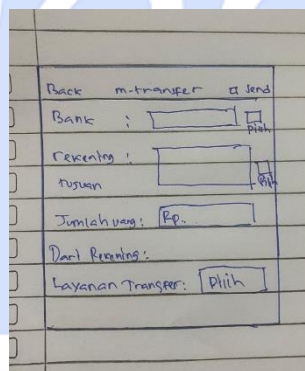 Back m-transfer Send
Bank :
Pilih
rekening :
tujuan
Pilih
Jumlah uang: Rp.
Dari Rekening:
Layanan Transfer: Pilih